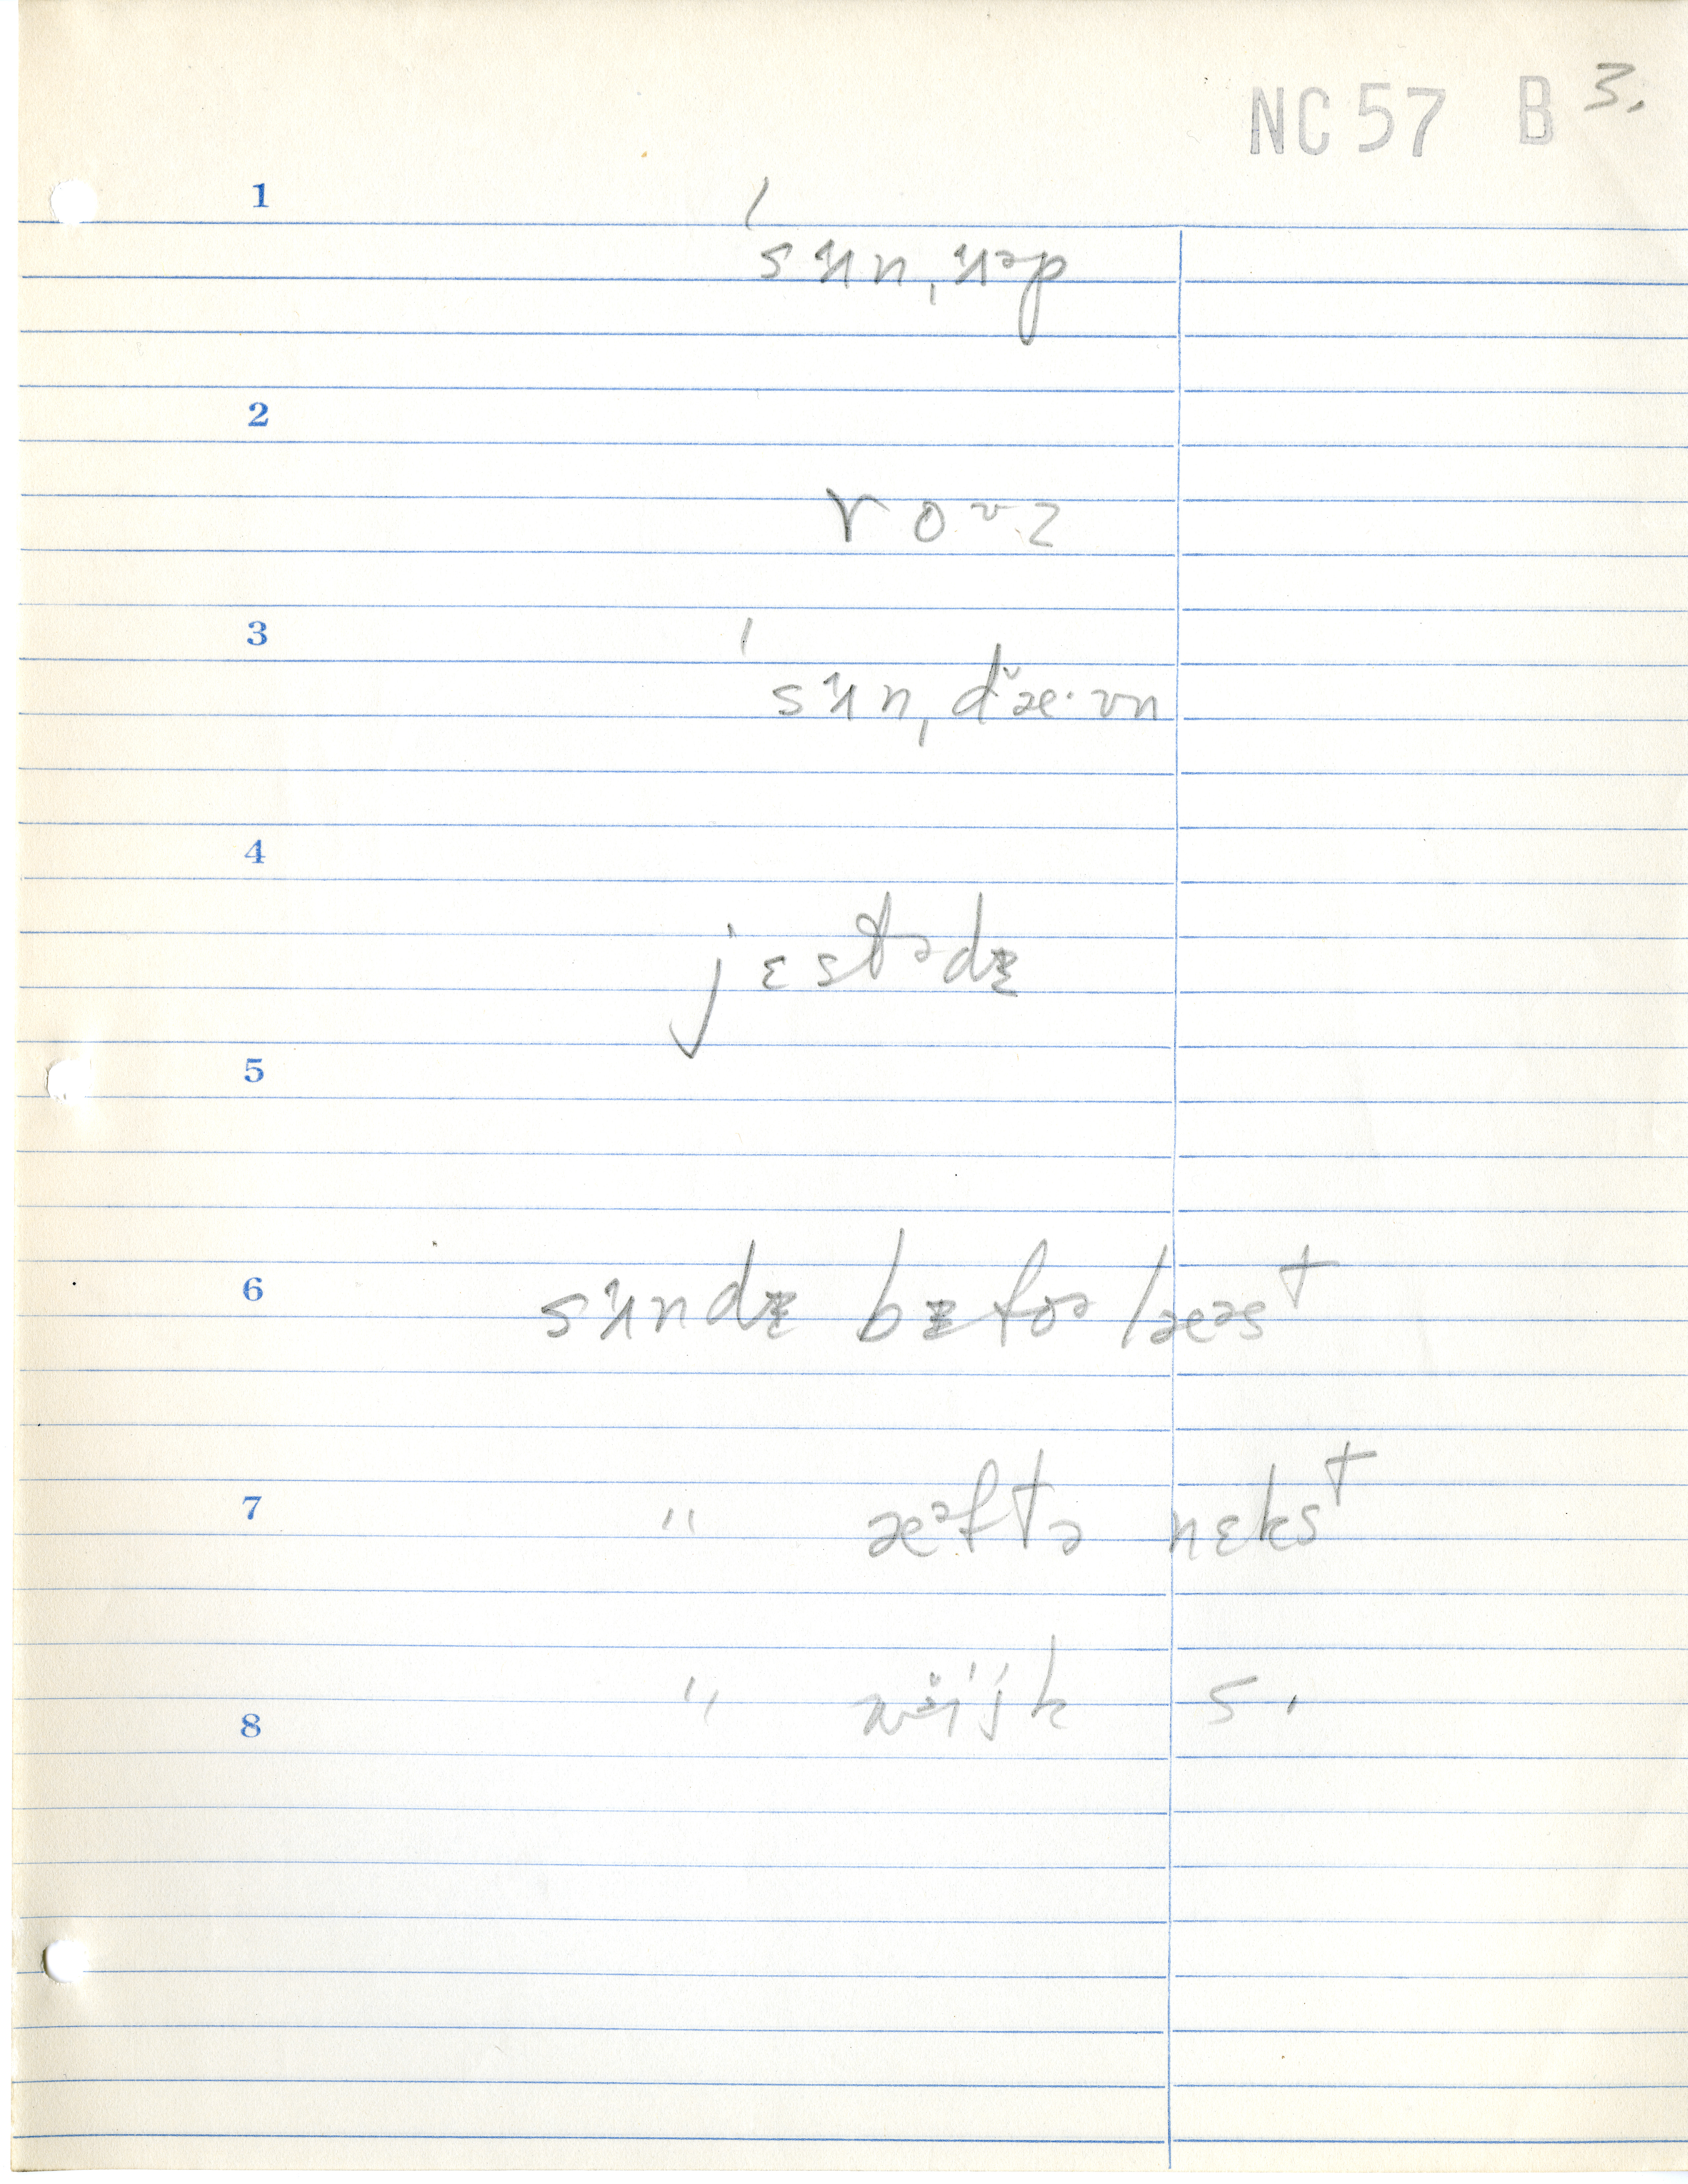 NC 57 B 3.
1
ˈsɤnˌɤᵊp
2
roᶷz
3
ˈsɤnˌdæ·ʊn
4
jɛstədɪ
5
6
sɤndɪ bɪfoə læəst
7
" æᵊftə nɛkst
" wijk s.
8